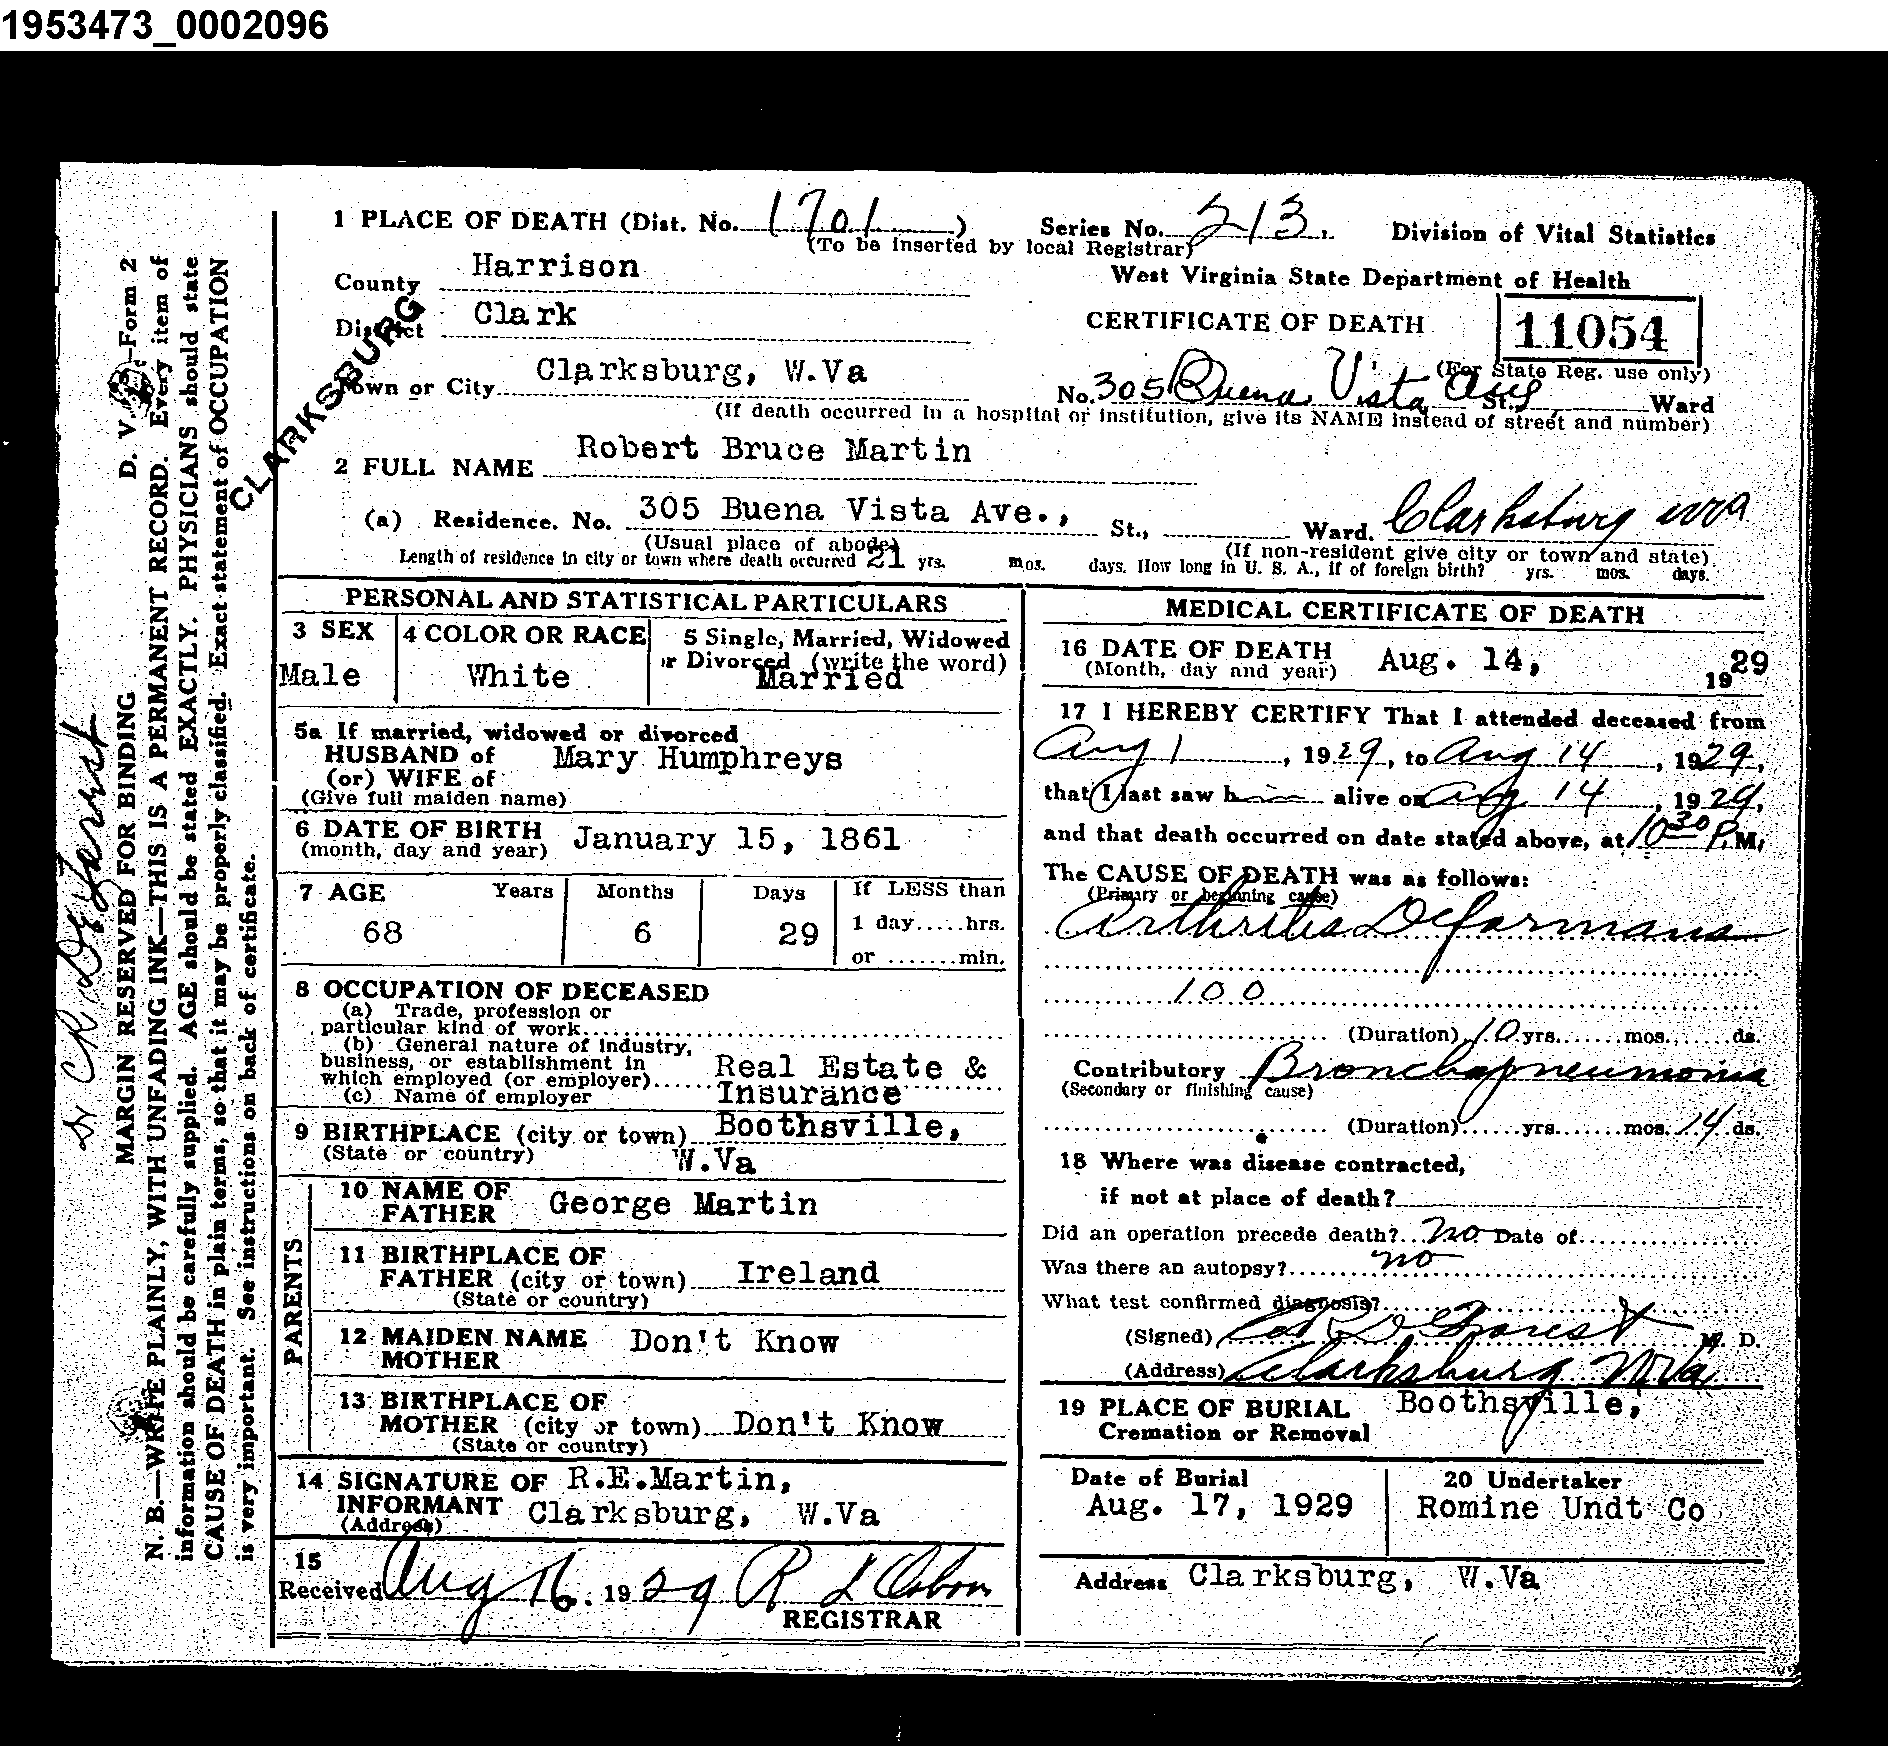 1953473_0002096
1 PLACE OF DEATH (Dist. No. 1701 ) Series No. 213. Division of Vital Statistics
(To be inserted by local Registrar)
County Harrison West Virginia State Department of Health
District Clark CERTIFICATE OF DEATH 11054
CLARKSBURG
(For State Reg. use only)
Town or City Clarksburg, W.Va No. 305 Buena Vista Ave St., Ward
(If death occurred in a hospital or institution, give its NAME instead of street and number)
2 FULL NAME Robert Bruce Martin
(a) Residence. No. 305 Buena Vista Ave., St., Ward. Clarksburg WVa
(Usual place of abode) (If non-resident give city or town and state)
Length of residence in city or town where death occurred 21 yrs. mos. days. How long in U. S. A., if of foreign birth? yrs. mos. days.
PERSONAL AND STATISTICAL PARTICULARS
3 SEX 4 COLOR OR RACE 5 Single, Married, Widowed
or Divorced (write the word)
Male White Married
5a If married, widowed or divorced
HUSBAND of Mary Humphreys
(or) WIFE of
(Give full maiden name)
6 DATE OF BIRTH January 15, 1861
(month, day and year)
7 AGE Years Months Days If LESS than
68 6 29 1 day.....hrs.
or .......min.
8 OCCUPATION OF DECEASED
(a) Trade, profession or
particular kind of work
(b) General nature of industry,
business, or establishment in
which employed (or employer) Real Estate &
(c) Name of employer Insurance
9 BIRTHPLACE (city or town) Boothsville,
(State or country) W.Va
PARENTS
10 NAME OF
FATHER George Martin
11 BIRTHPLACE OF
FATHER (city or town) Ireland
(State or country)
12 MAIDEN NAME Don't Know
MOTHER
13 BIRTHPLACE OF
MOTHER (city or town) Don't Know
(State or country)
14 SIGNATURE OF R.E.Martin,
INFORMANT Clarksburg, W.Va
(Address)
15
Received Aug 16. 1929 R L Osborn
REGISTRAR
MEDICAL CERTIFICATE OF DEATH
16 DATE OF DEATH Aug. 14, 1929
(Month, day and year)
17 I HEREBY CERTIFY That I attended deceased from
Aug 1, 1929, to Aug 14, 1929,
that I last saw him alive on Aug 14, 1929,
and that death occurred on date stated above, at 10 30 P.M.
The CAUSE OF DEATH was as follows:
(Primary or beginning cause)
Arthritis Deformans
100
(Duration) 10 yrs. mos. ds.
Contributory Bronchopneumonia
(Secondary or finishing cause)
(Duration) yrs. mos. 14 ds.
18 Where was disease contracted,
if not at place of death?
Did an operation precede death? no Date of
Was there an autopsy? no
What test confirmed diagnosis?
(Signed) DeForest M. D.
(Address) Clarksburg WVa
19 PLACE OF BURIAL Boothsville,
Cremation or Removal
Date of Burial 20 Undertaker
Aug. 17, 1929 Romine Undt Co
Address Clarksburg, W.Va
D. V. S.—Form 2
MARGIN RESERVED FOR BINDING
N. B.—WRITE PLAINLY, WITH UNFADING INK—THIS IS A PERMANENT RECORD. Every item of
information should be carefully supplied. AGE should be stated EXACTLY. PHYSICIANS should state
CAUSE OF DEATH in plain terms, so that it may be properly classified. Exact statement of OCCUPATION
is very important. See instructions on back of certificate.
Dr C R DeForest